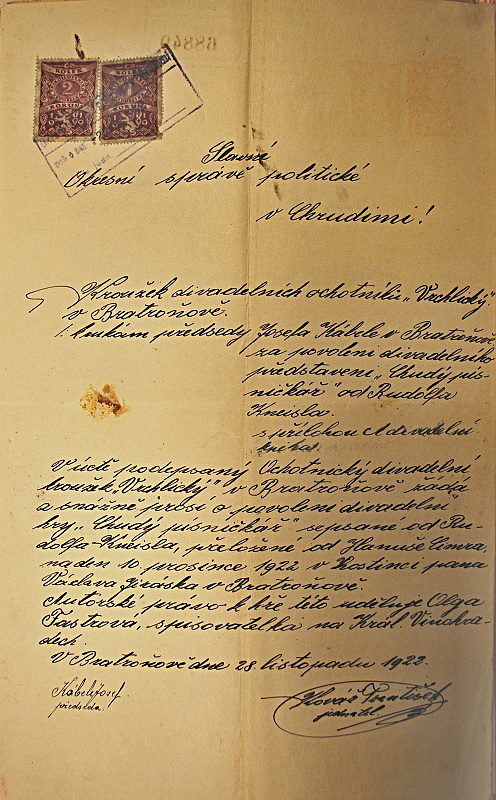 68849
KOLEK KOLEK
2 1
KORUNY KORUNA
19 19
Slavné
Okresní správě politické
v Chrudimi!
Kroužek divadelních ochotníků „Vrchlický"
v Bratroňově.
Josefa Kábele v Bratroňově
předsedy
za povolení divadelního
představení „Chudý pís-
ničkář" od Rudolfa
Kneisla.
s přílohou 1 divadelní
V úctě podepsaný Ochotnický divadelní
kroužek „Vrchlický", v Bratroňově žádá
a snažně prosí o povolení divadelní
hry „Chudý písničkář" sepsané od Ru-
dolfa Kneisla, přeložené od Hanuše Cimra,
na den 10. prosince 1922 v hostinci pana
Václava Jiráska v Bratroňově.
Autorské právo k hře této uděluje Olga
Fastrová, spisovatelka na Král. Vinohra-
dech.
V Bratroňově dne 28. listopadu 1922.
Kábele Josef
předseda.
František
jednatel